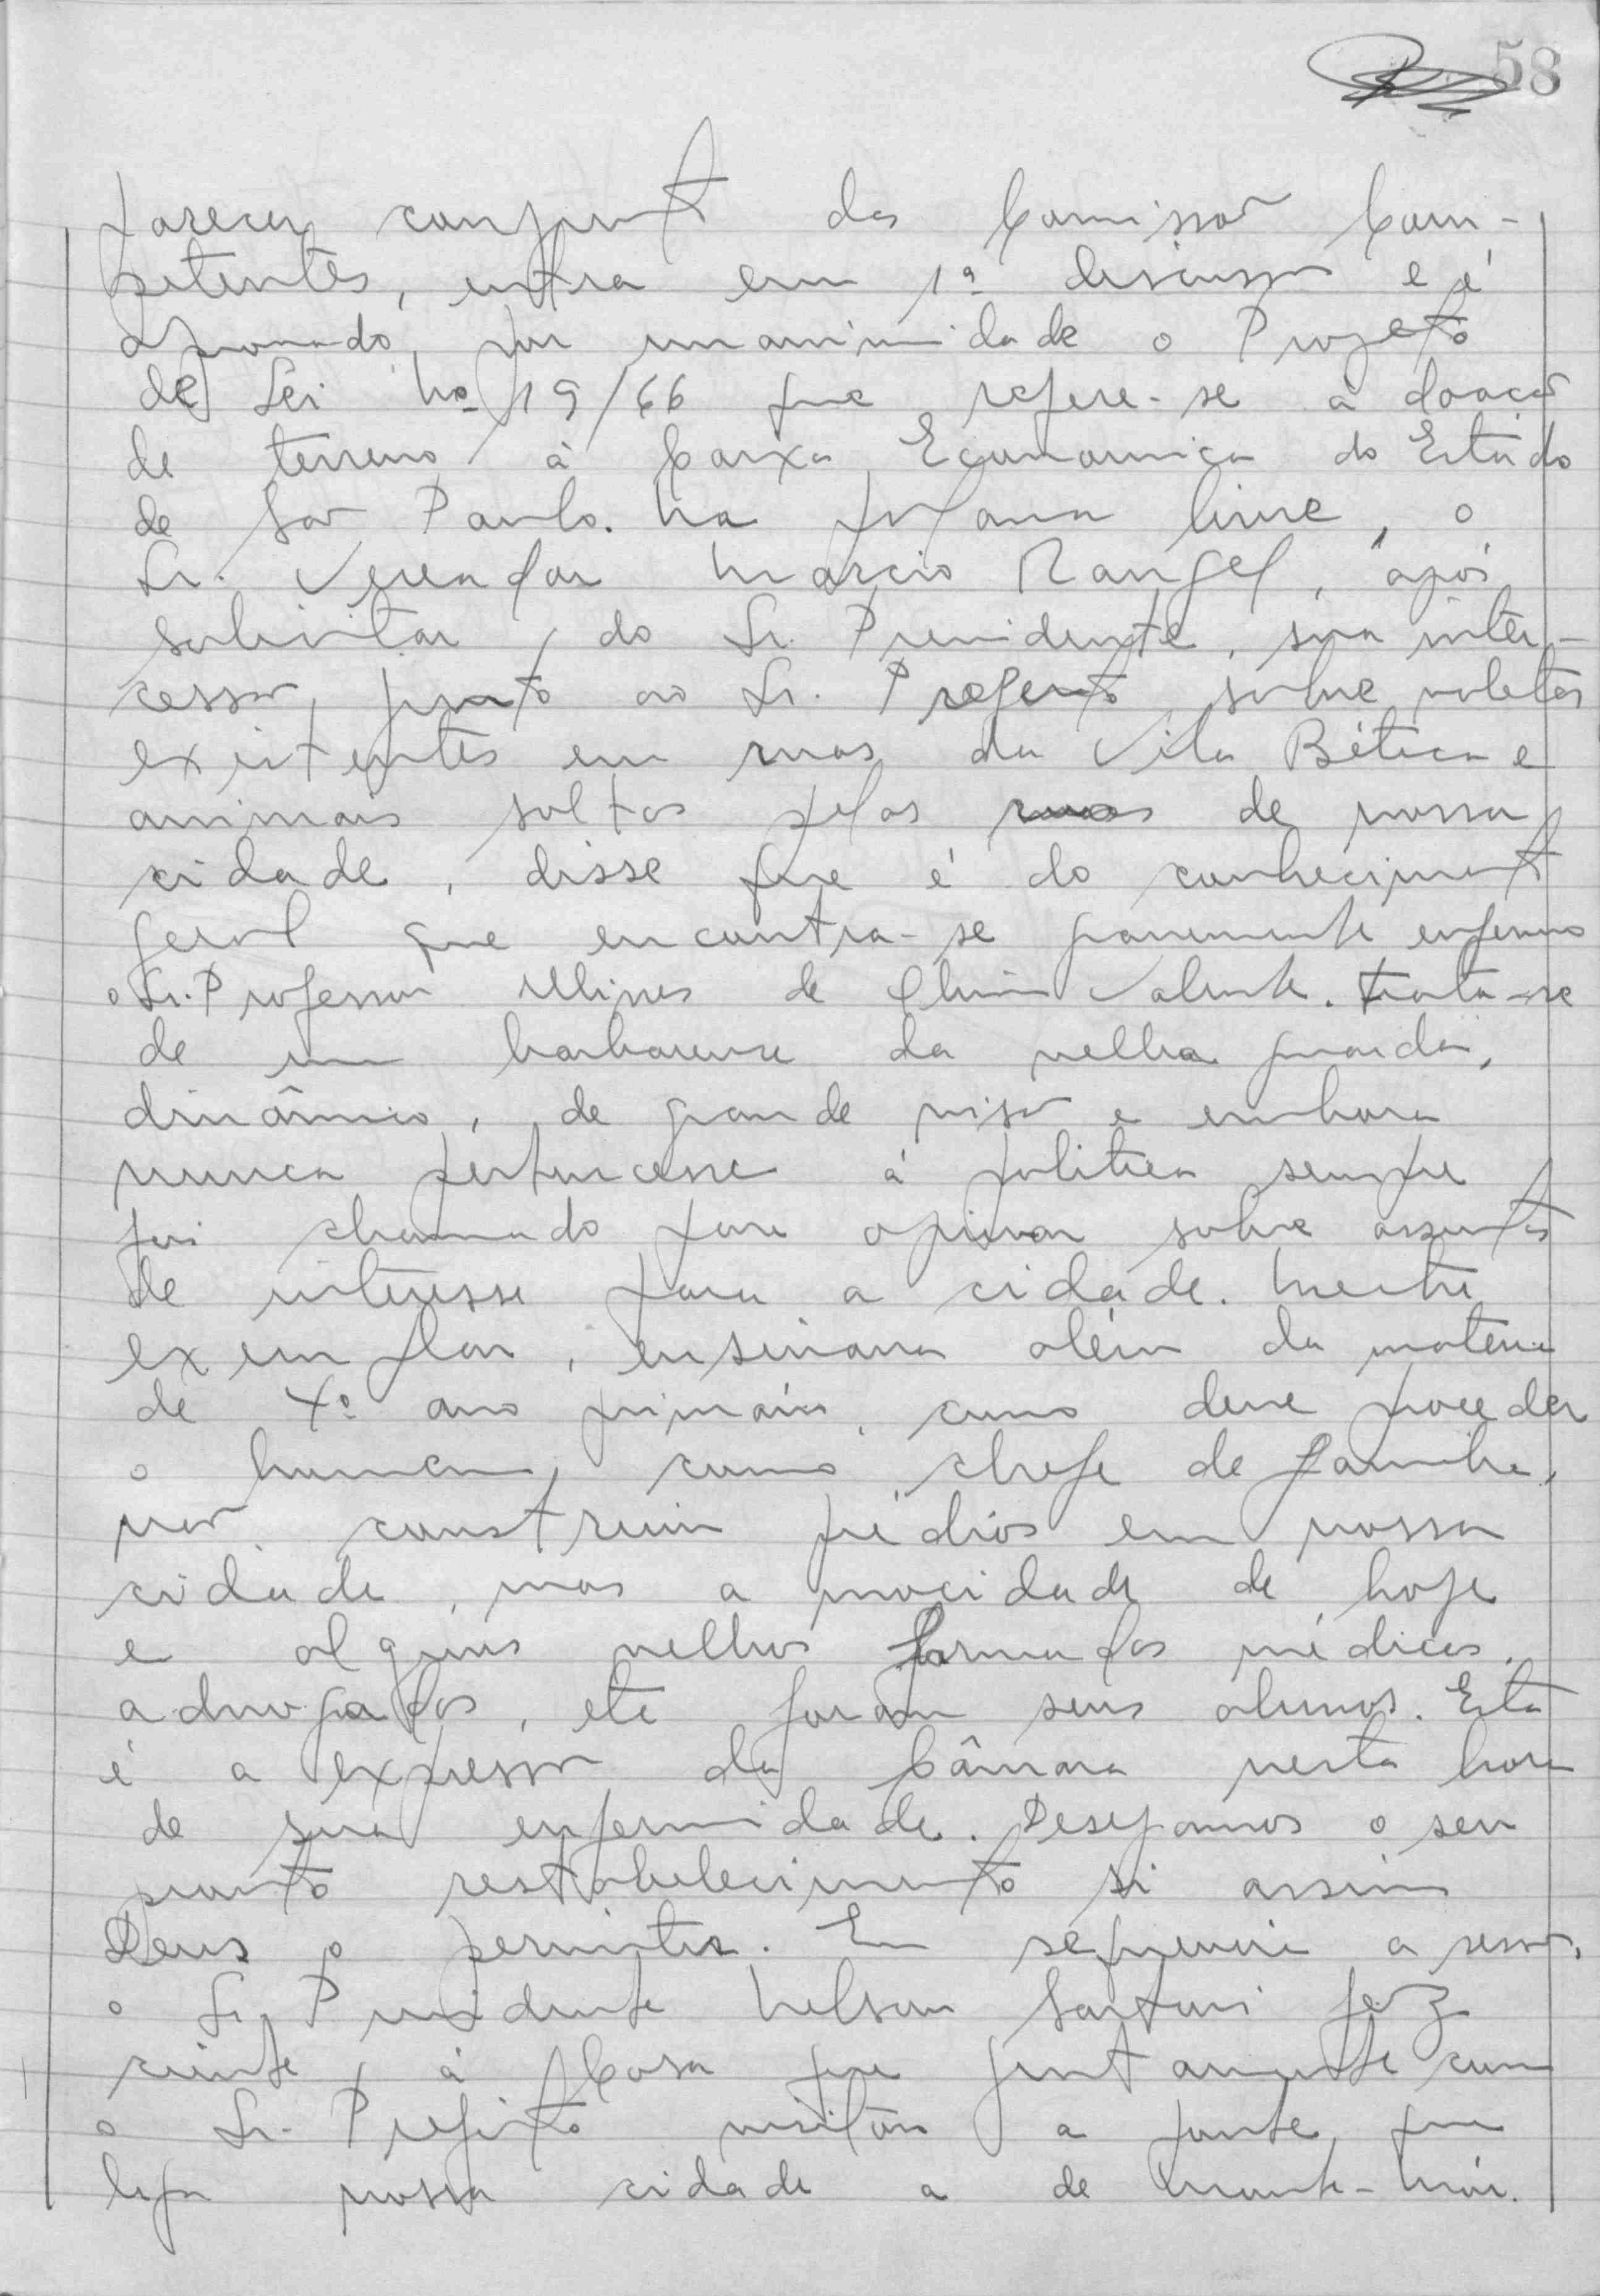 58
parecer conjunto das Comissão Com-
petentes, entra em 1ª discussão e é
aprovado, por unanimidade o Projeto
de Lei nº 19/66 que refere-se a doação
de terreno à Caixa Economica do Estado
de São Paulo. Na palavra livre, o
Sr. Vereador Marcio Rangel, após
solicitar, do Sr. Presidente, sua inter-
cessão, junto ao Sr. Prefeito sobre valetas
existentes em ruas da Vila Bética e
animais soltos pelas ruas de nossa
cidade, disse que é do conhecimento
geral que encontra-se gravemente enfermo
o Sr. Professor Ulisses de Valente. Trata-se
de um barbarense da velha guarda,
dinâmico, de grande visão e embora
nunca pertencesse à politica sempre
foi chamado para opinar sobre assuntos
de interesse para a cidade. Mestre
exemplar, ensinava além da materia
de 4º ano primário, como deve proceder
o homem, como chefe de familia,
não construiu prédios em nossa
cidade, mas a mocidade de hoje
e alguns velhos formados médicos,
advogados, etc foram seus alunos. Esta
é a expressão da Câmara nesta hora
de sua enfermidade. Desejamos o seu
pronto restabelecimento si assim
Deus o permitir. Em sequencia a sessão,
o Sr. Presidente Nelson Sartori fez
ciente, à Casa que juntamente com
o Sr. Prefeito visitou a ponte que
liga nossa cidade a de Monte-Mór.